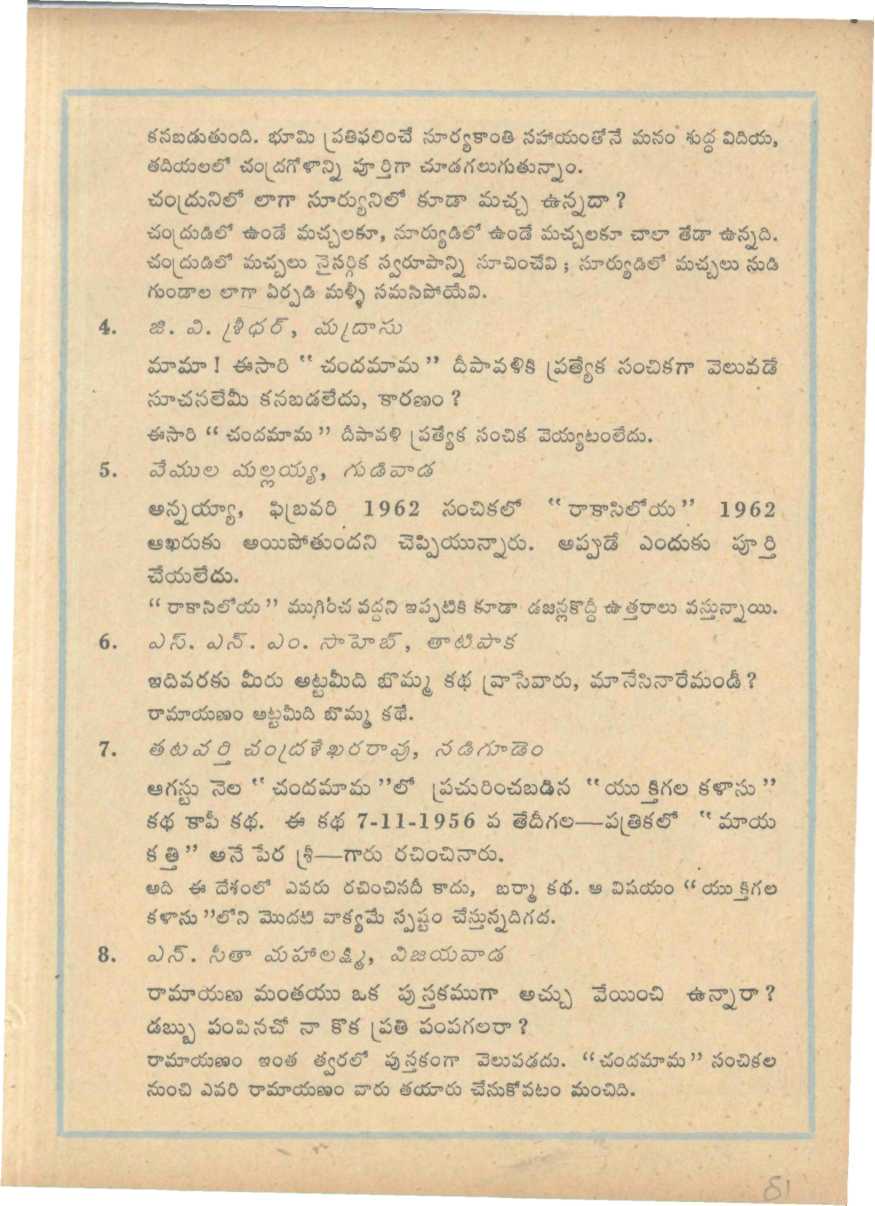 కనబడుతుంది. భూమి ప్రతిఫలించే సూర్యకాంతి సహాయంతోనే మనం శుద్ధ విదియ,
తదియలలో చంద్రగోళాన్ని పూర్తిగా చూడగలుగుతున్నాం.
చంద్రునిలో లాగా సూర్యునిలో కూడా మచ్చ ఉన్నదా ?
చంద్రుడిలో ఉండే మచ్చలకూ, సూర్యుడిలో ఉండే మచ్చలకూ చాలా తేడా ఉన్నది.
చంద్రుడిలో మచ్చలు నైసర్గిక స్వరూపాన్ని సూచించేవి ; సూర్యుడిలో మచ్చలు సుడి
గుండాల లాగా ఏర్పడి మళ్ళీ సమసిపోయేవి.
4. జి. వి. శ్రీధర్, మద్రాసు
మామా ! ఈసారి “ చందమామ ” దీపావళికి ప్రత్యేక సంచికగా వెలువడే
సూచనలేమీ కనబడలేదు, కారణం ?
ఈసారి “ చందమామ ” దీపావళి ప్రత్యేక సంచిక వెయ్యటంలేదు.
5. వేముల మల్లయ్య, గుడివాడ
అన్నయ్యా, ఫిబ్రవరి 1962 సంచికలో “ రాకాసిలోయ ” 1962
ఆఖరుకు అయిపోతుందని చెప్పియున్నారు. అప్పుడే ఎందుకు పూర్తి
చేయలేదు.
“ రాకాసిలోయ ” ముగించ వద్దని ఇప్పటికి కూడా డజన్లకొద్దీ ఉత్తరాలు వస్తున్నాయి.
6. ఎస్. ఎన్. ఎం. సాహెబ్, తాటిపాక
ఇదివరకు మీరు అట్టమీది బొమ్మ కథ వ్రాసేవారు, మానేసినారేమండీ ?
రామాయణం అట్టమీది బొమ్మ కథే.
7. తటవర్తి చంద్రశేఖరరావు, నడిగూడెం
ఆగస్టు నెల “ చందమామ ”లో ప్రచురించబడిన “యుక్తిగల కళాసు ”
కథ కాపీ కథ. ఈ కథ 7-11-1956 వ తేదీగల—పత్రికలో “ మాయ
కత్తి ” అనే పేర శ్రీ—గారు రచించినారు.
అది ఈ దేశంలో ఎవరు రచించినదీ కాదు, బర్మా కథ. ఆ విషయం “ యుక్తిగల
కళాసు ”లోని మొదటి వాక్యమే స్పష్టం చేస్తున్నదిగద.
8. ఎన్. సీతా మహాలక్ష్మి, విజయవాడ
రామాయణ మంతయు ఒక పుస్తకముగా అచ్చు వేయించి ఉన్నారా ?
డబ్బు పంపినచో నా కొక ప్రతి పంపగలరా ?
రామాయణం ఇంత త్వరలో పుస్తకంగా వెలువడదు. “చందమామ ” సంచికల
నుంచి ఎవరి రామాయణం వారు తయారు చేసుకోవటం మంచిది.
81